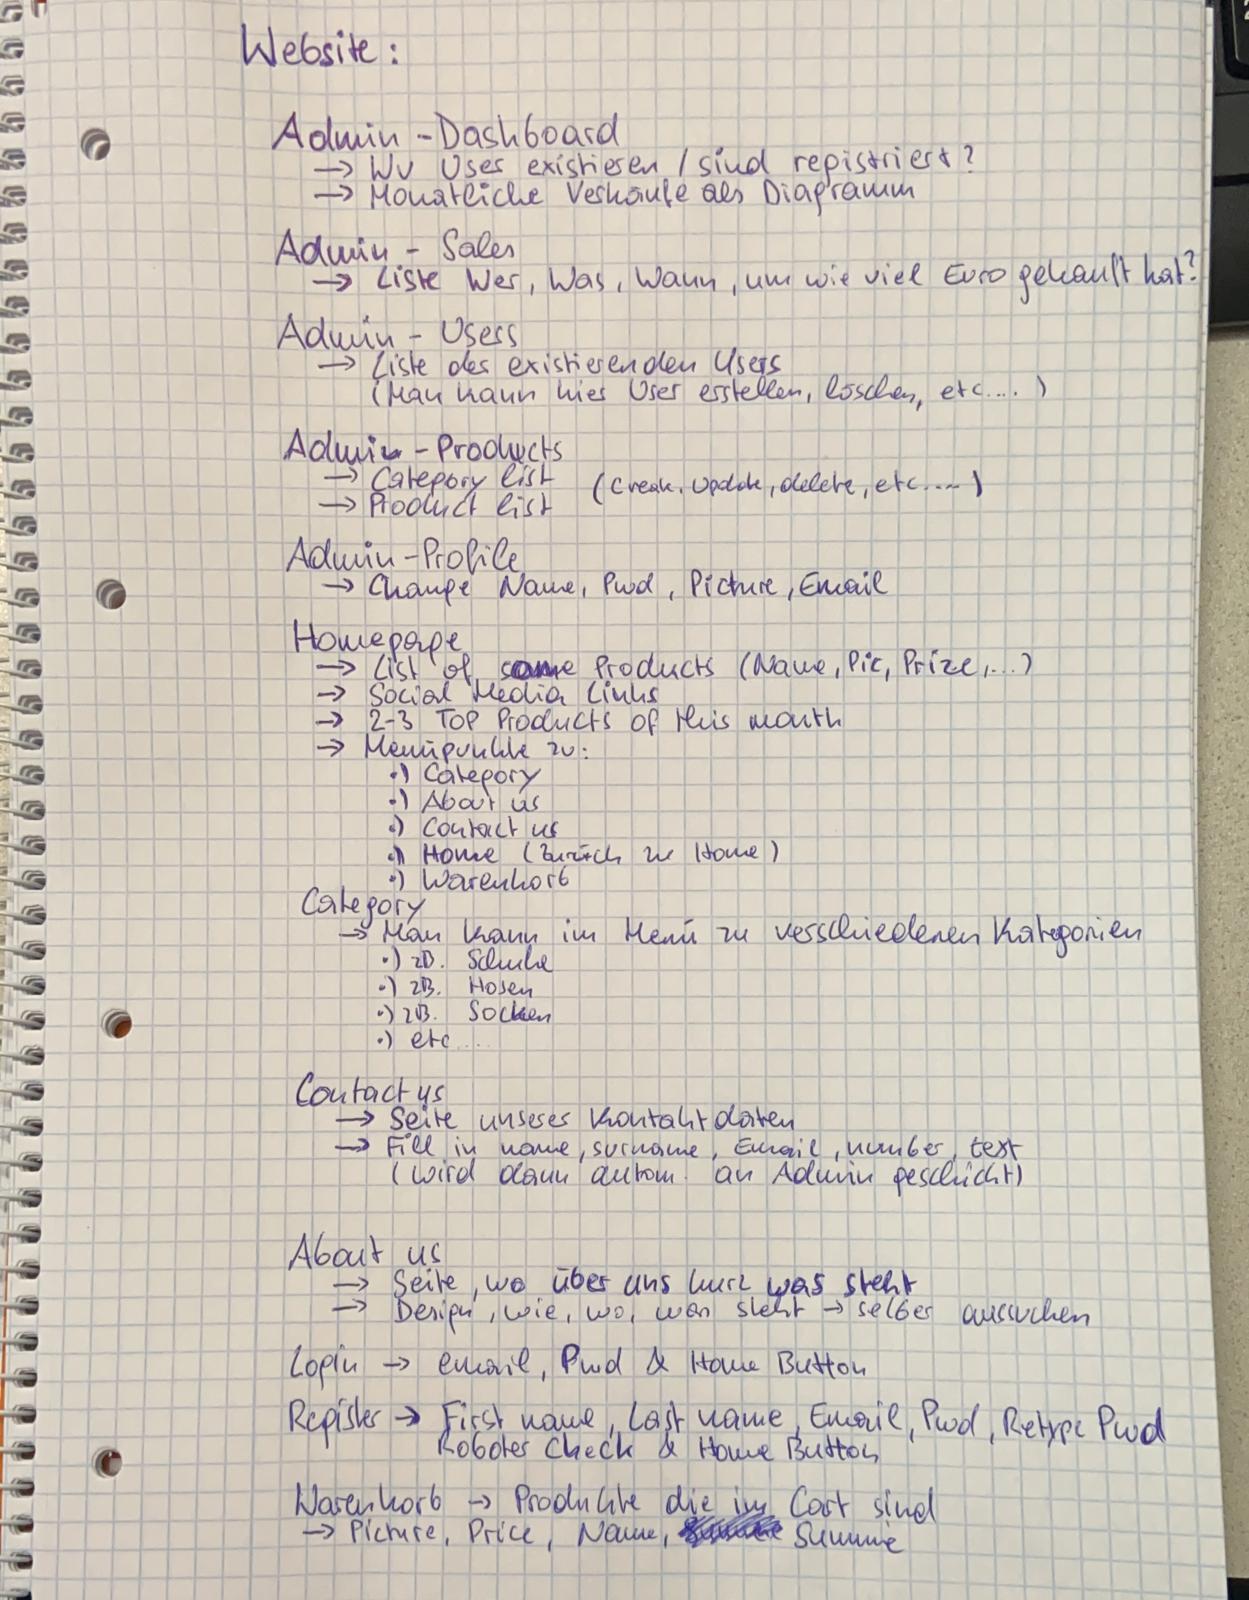 Website:
Admin - Dashboard
→ Wv User existieren / sind registriert?
→ Monatliche Verkäufe als Diagramm
Admin - Sales
→ Liste Wer, Was, Wann, um wie viel Euro gekauft hat?
Admin - Users
→ Liste der existierenden Users
(Man kann hier User erstellen, löschen, etc....)
Admin - Products
→ Category list (Create, Update, delete, etc.....)
→ Product list
Admin - Profile
→ Change Name, Pwd, Picture, Email
Homepage
→ List of some Products (Name, Pic, Prize,...)
→ Social Media Links
→ 2-3 Top Products of this month
→ Menüpunkte zu:
•) Category
•) About us
•) Contact us
•) Home (Zurück zu Home)
•) Warenkorb
Category
→ Man kann im Menü zu verschiedenen Kategorien
•) zB. Schuhe
•) zB. Hosen
•) zB. Socken
•) etc....
Contact us
→ Seite unserer Kontaktdaten
→ Fill in name, surname, Email, number, text
(wird dann autom. an Admin geschickt)
About us
→ Seite, wo über uns kurz was steht
→ Design, wie, wo, was steht → selber aussuchen
Login → email, Pwd & Home Button
Register → First name, Last name, Email, Pwd, Retype Pwd
Roboter Check & Home Button
Warenkorb → Produkte die im Cart sind
→ Picture, Price, Name, Summe